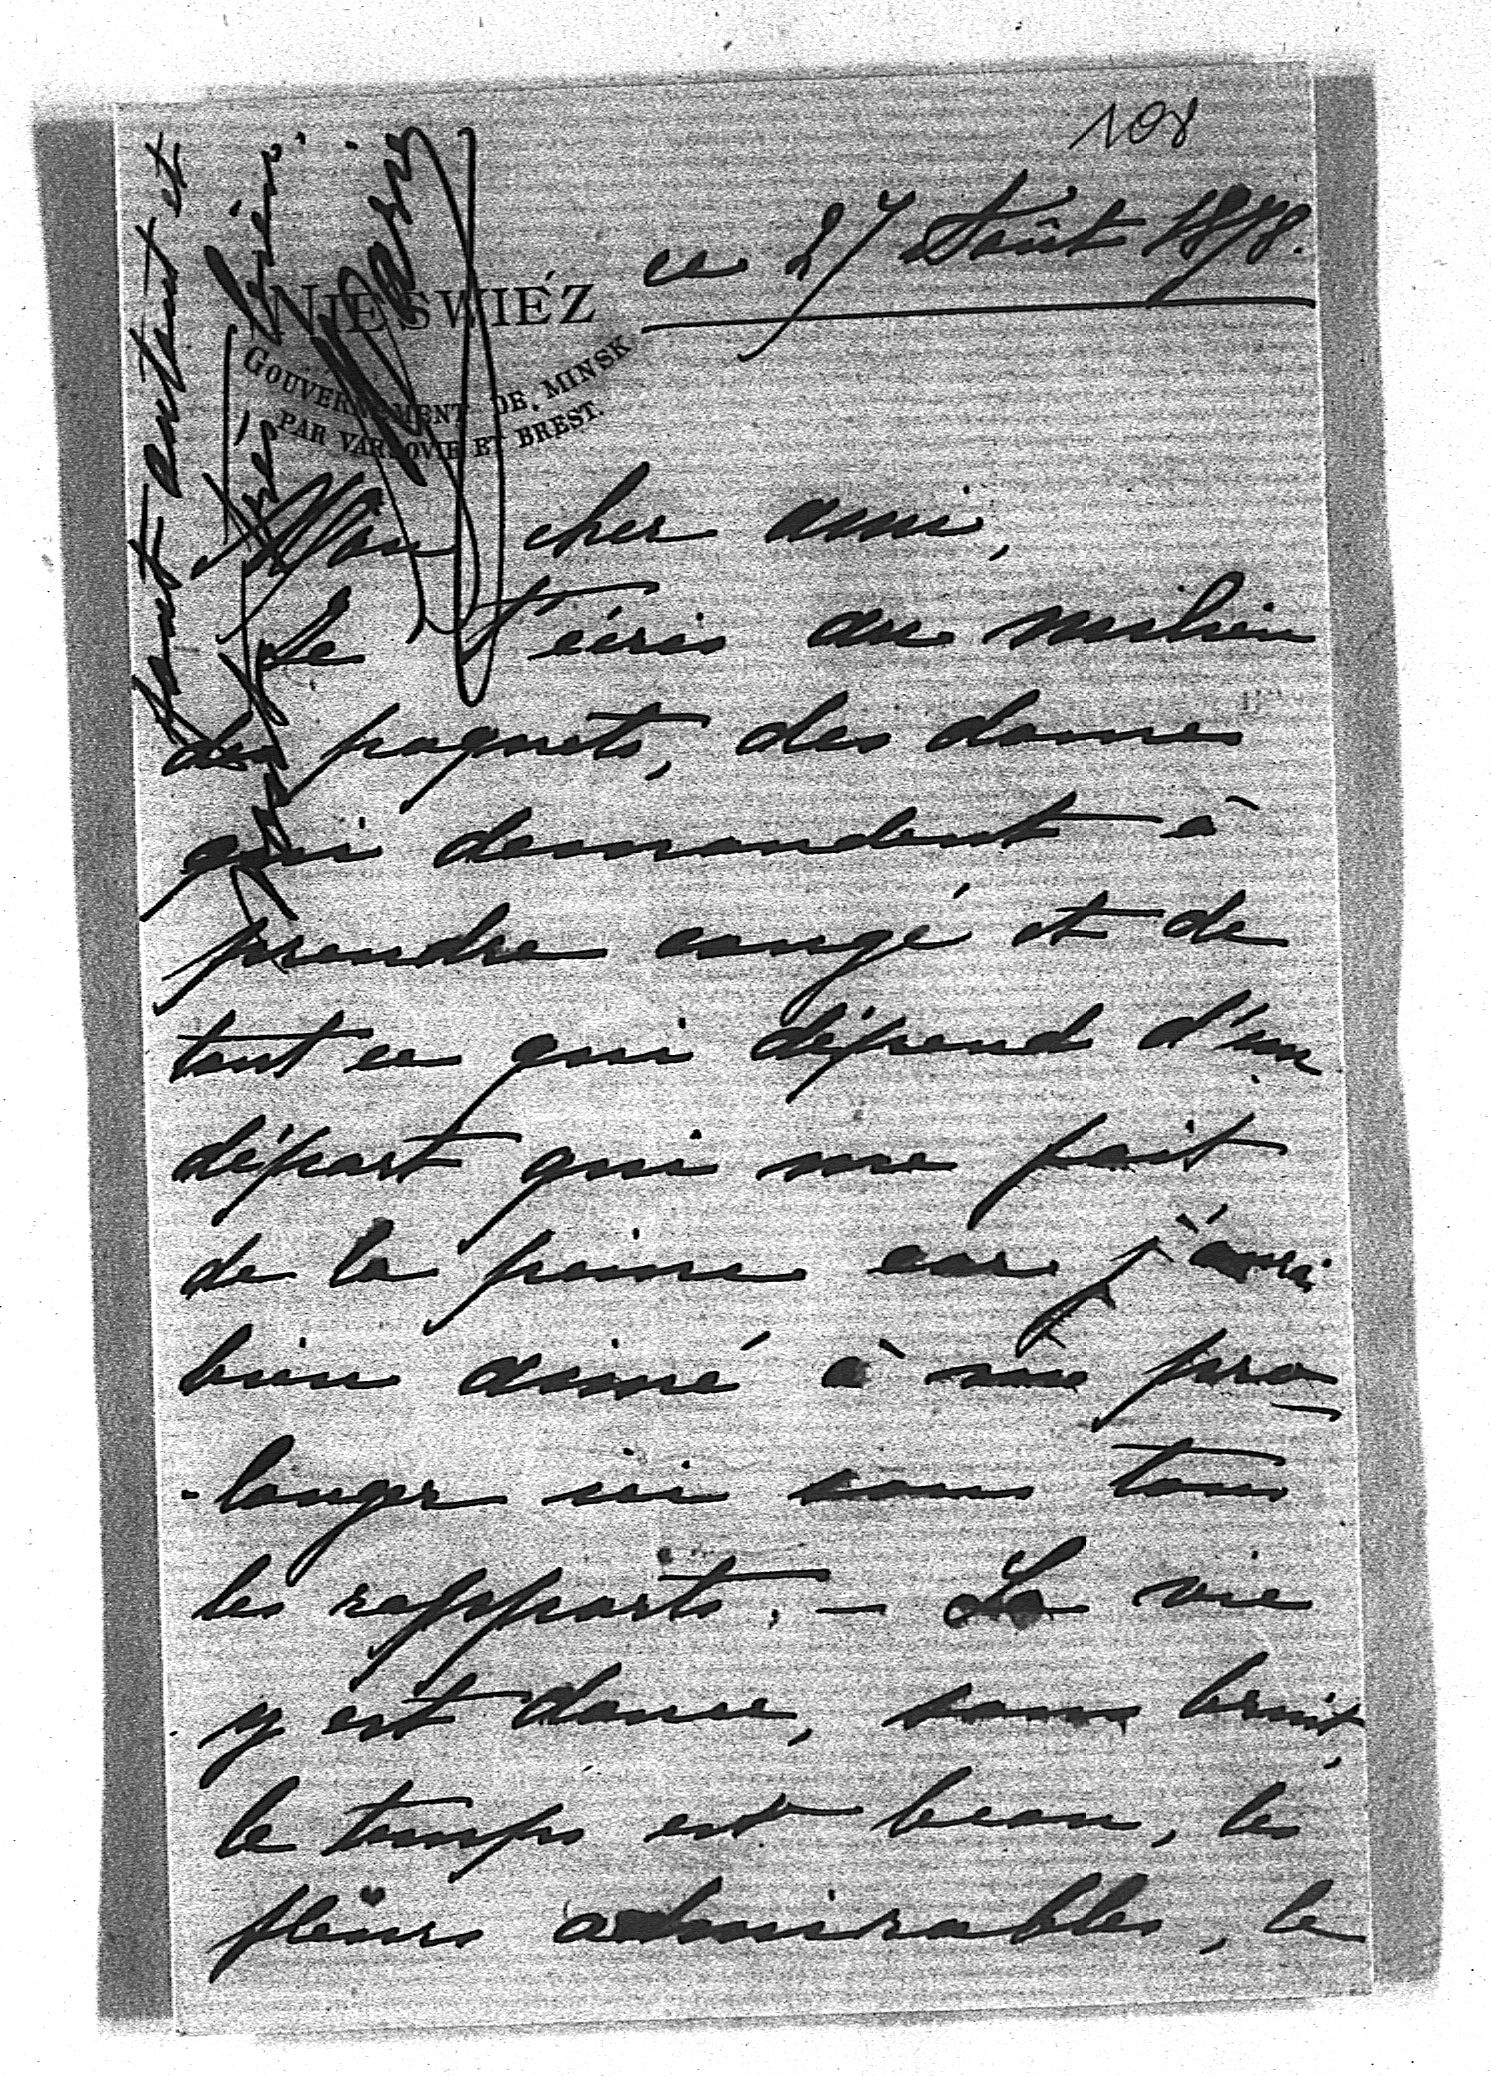 108
ce 27 Août 1898.
NIESWIÉZ
GOUVERNEMENT DE MINSK
PAR VARSOVIE ET BREST.
Mon cher ami,
Je t'écris au milieu
des paquets, des dames
qui demandent à
prendre congé et de
tout ce qui dépend d'un
départ qui me fait
de la peine car j'aurai
bien aimé à me pro-
-longer ici sous tous
les rapports. – La vie
y est douce, sans bruit,
le temps est beau, les
fleurs admirables, le
tout entent et
très bien.